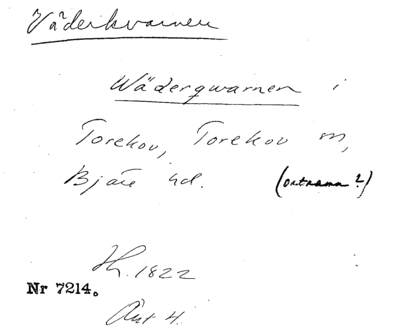 Väderkvarnen
Wäderqwarnen i
Torekov, Torekov sn,
Bjäre hd. (ortnamn?)
Hh. 1822
Nr 7214.
Änt 4.